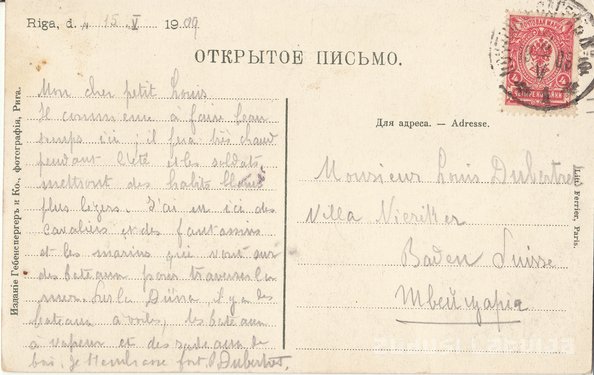 Riga, d. 15 V 1909
ОТКРЫТОЕ ПИСЬМО.
Mon cher petit Louis
Il commence à faire beau
temps ici, il fera très chaud
pendant l'été et les soldats
mettront des habits blancs
plus légers. J'ai vu ici des
cavaliers et des fantassins
et les marins qui vont sur
des bateaux pour traverser la
mer. Sur la Düna, il y a des
bateaux à voiles, les bateaux
à vapeur et des radeaux de
bois. Je t'embrasse fort. Dubertret
Для адреса. — Adresse.
Monsieur Louis Dubertret
Villa
Baden Suisse
Швейцария
Изданіе Гебенспергеръ и Ко., фотографія, Рига.
Ferrier, Paris.